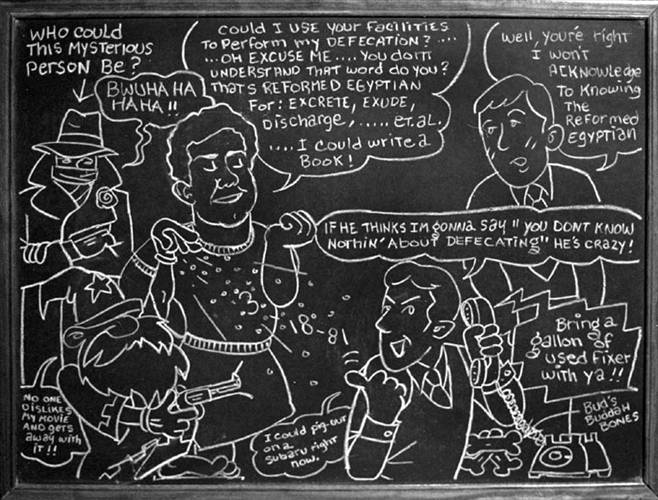 WHO COULD
THIS MYSTERIOUS
PERSON BE?
BWUHA HA
HAHA!!
COULD I USE YOUR FACILITIES
TO PERFORM MY DEFECATION?....
...OH EXCUSE ME.... YOU DON'T
UNDERSTAND THAT WORD DO YOU?
THAT'S REFORMED EGYPTIAN
FOR: EXCRETE, EXUDE,
DISCHARGE,..... ET.AL.
....I COULD WRITE A
BOOK!
Well, you're right
I WON'T
ACKNOWLEDGE
TO KNOWING
THE
REFORMED
EGYPTIAN
IF HE THINKS IM gonna SAY "YOU DONT KNOW
NOTHIN' ABOUT DEFECATING" HE'S CRAZY!
18-81
Bring a
gallon of
used fixer
with ya!!
NO ONE
DISLIKES
MY MOVIE
AND GETS
AWAY WITH
IT!!
I COULD PIG-OUT
ON A
SUBARU RIGHT
NOW.
BUD'S
BUDDAH
BONES